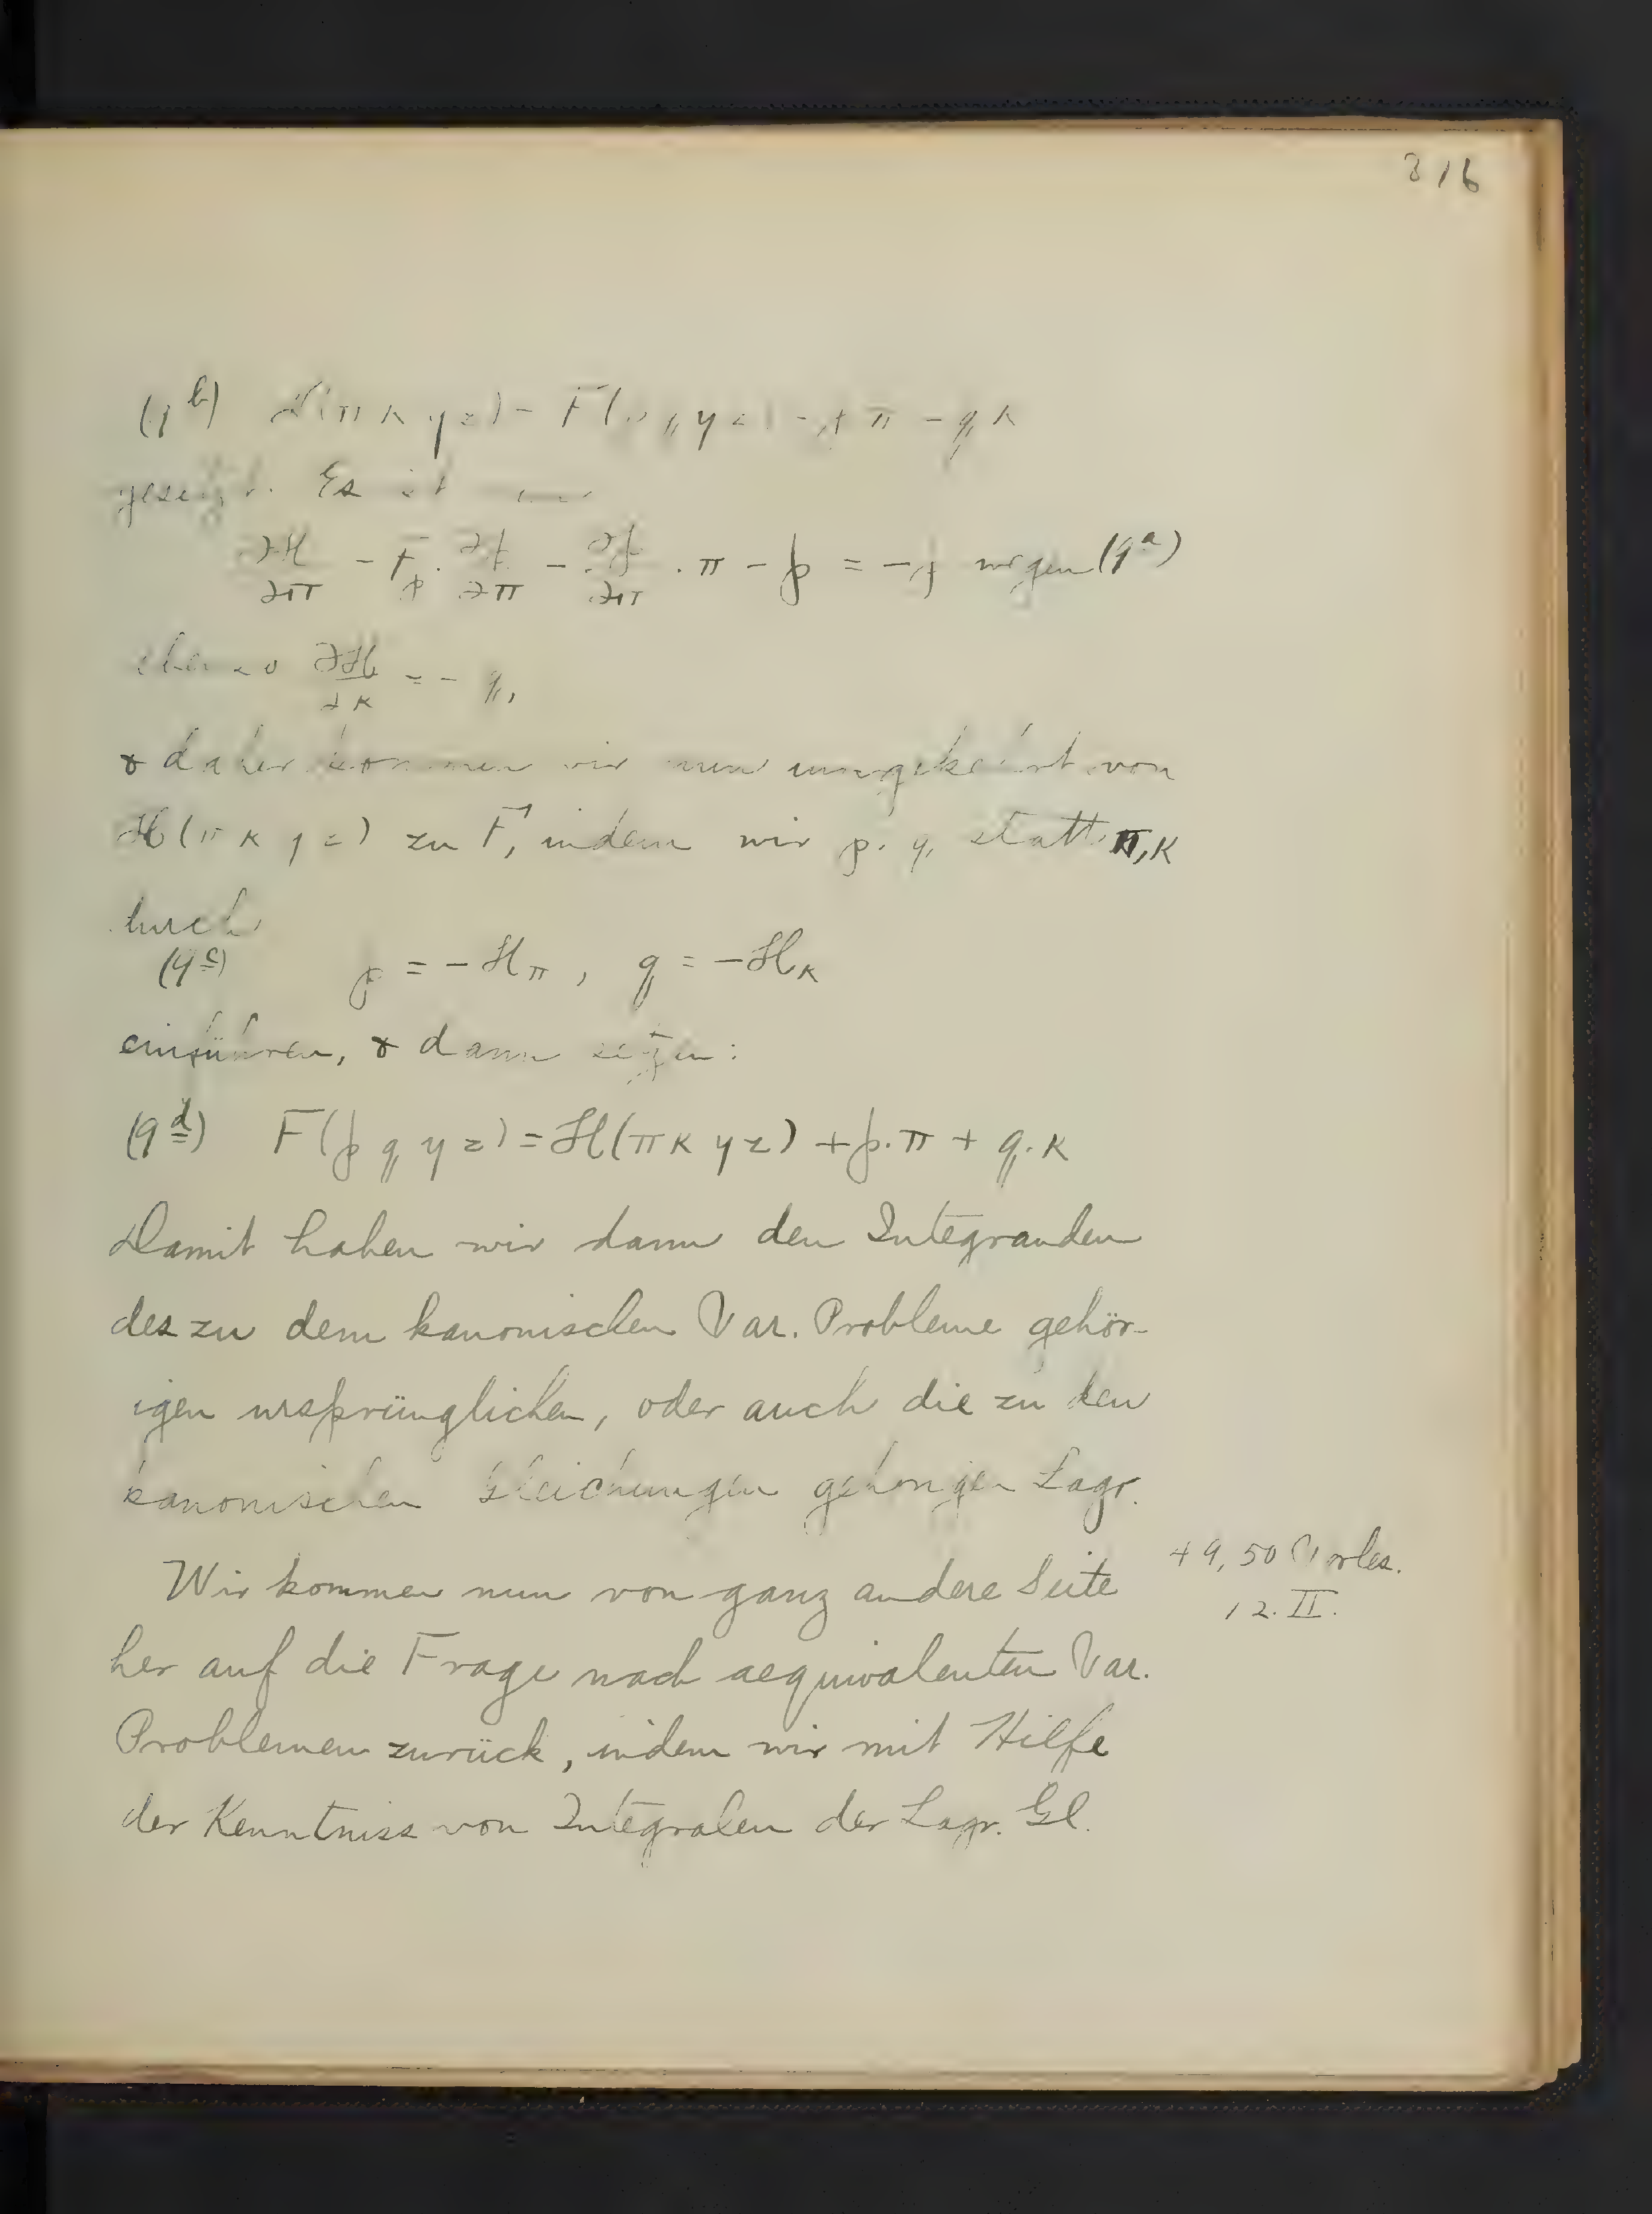 316
(9b) H(π κ y z) = F(p q y z) - pπ - qκ
gesetzt. Es ist
∂H/∂π = F_p · ∂p/∂π - ∂p/∂π · π - p = -p wegen (9a)
ebenso ∂H/∂κ = - q,
& daher kommen wir nun umgekehrt von
H(π κ y z) zu F, indem wir p, q, statt π, κ
durch
(9c) p = -H_π, q = -H_κ
einführen, & dann setzen:
(9d) F(p q y z) = H(π κ y z) + p·π + q·κ
Damit haben wir dann den Integranden
des zu dem kanonischen Var. Probleme gehör-
igen ursprünglichen, oder auch die zu den
kanonischen Gleichungen gehörigen Lagr.
Wir kommen nun von ganz andere Seite
49,50 Vorles.
12. II.
her auf die Frage nach aequivalenten Var.
Problemen zurück, indem wir mit Hilfe
der Kenntniss von Integralen der Lagr. Gl.